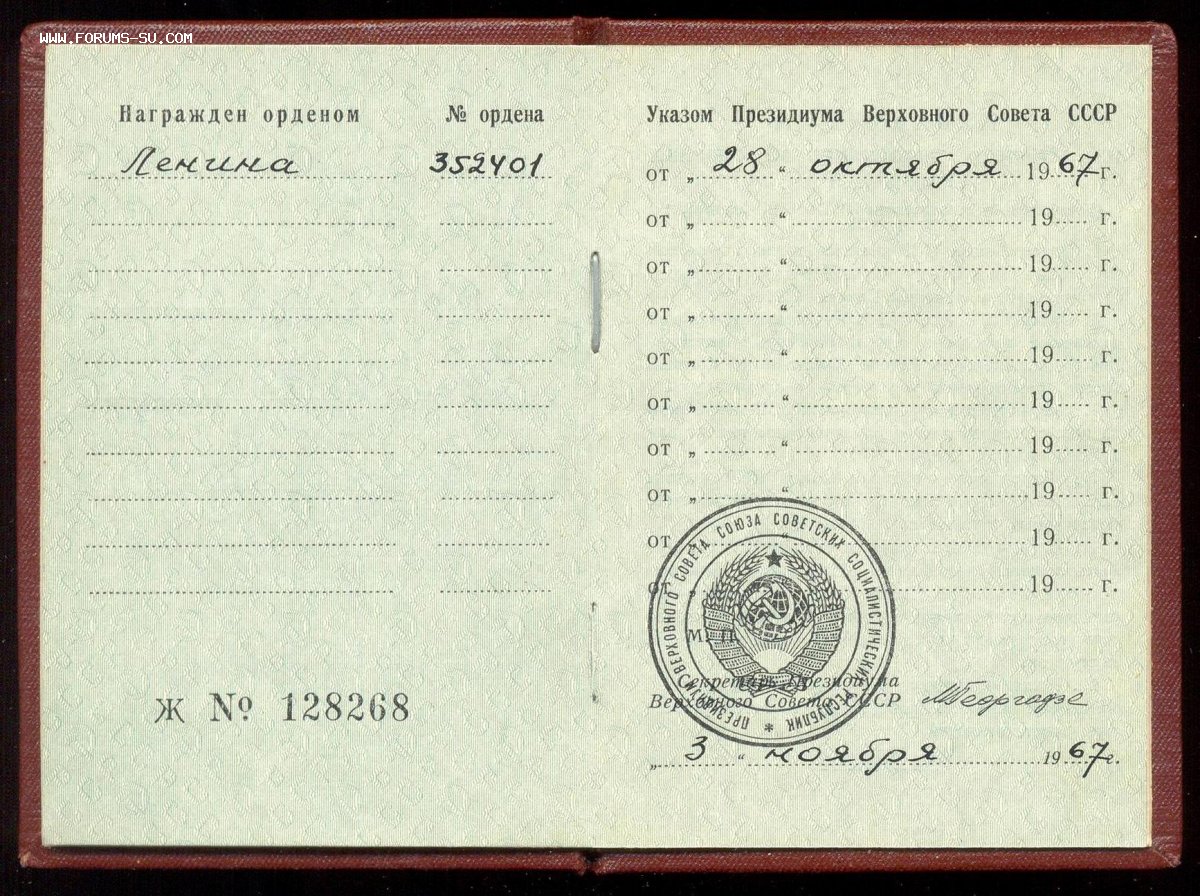 WWW.FORUMS-SU.COM
Награжден орденом № ордена
Ленина 352401
Ж № 128268
Указом Президиума Верховного Совета СССР
от „ 28 “ октября 1967 г.
от „ “ 19 г.
от „ “ 19 г.
от „ “ 19 г.
от „ “ 19 г.
от „ “ 19 г.
от „ “ 19 г.
от „ “ 19 г.
от „ “ 19 г.
от „ “ 19 г.
М. П.
ПРЕЗИДИУМ ВЕРХОВНОГО СОВЕТА СОЮЗА СОВЕТСКИХ СОЦИАЛИСТИЧЕСКИХ РЕСПУБЛИК *
Секретарь Президиума
Верховного Совета СССР МГеоргадзе
„ 3 “ ноября 1967 г.